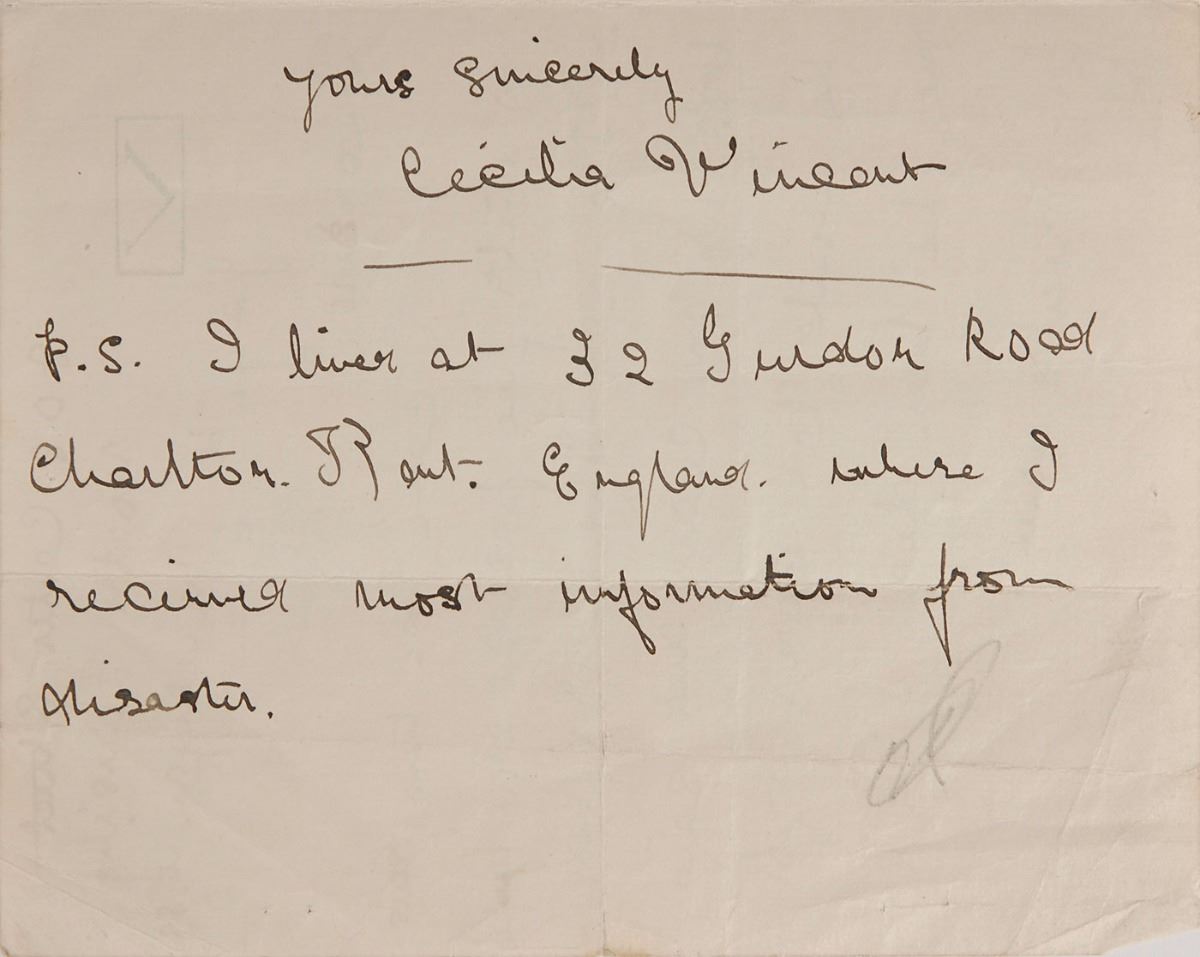 Yours Sincerely
Cecilia Vincent
P.S. I lived at 32 Gurdon Road
Charlton. Kent. England. where I
recieved most information from
disaster.